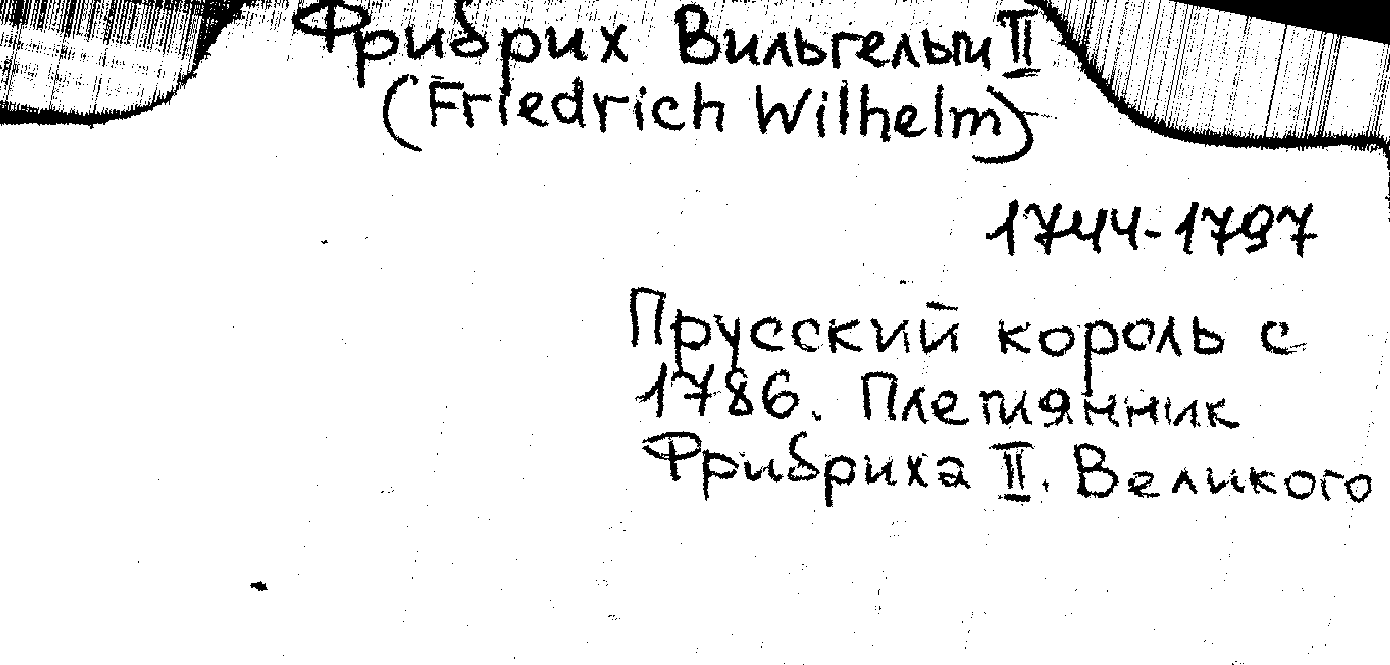 Фридрих Вильгельм II
(Friedrich Wilhelm)
1744-1797
Прусский король с
1786. Племянник
Фридриха II. Великого